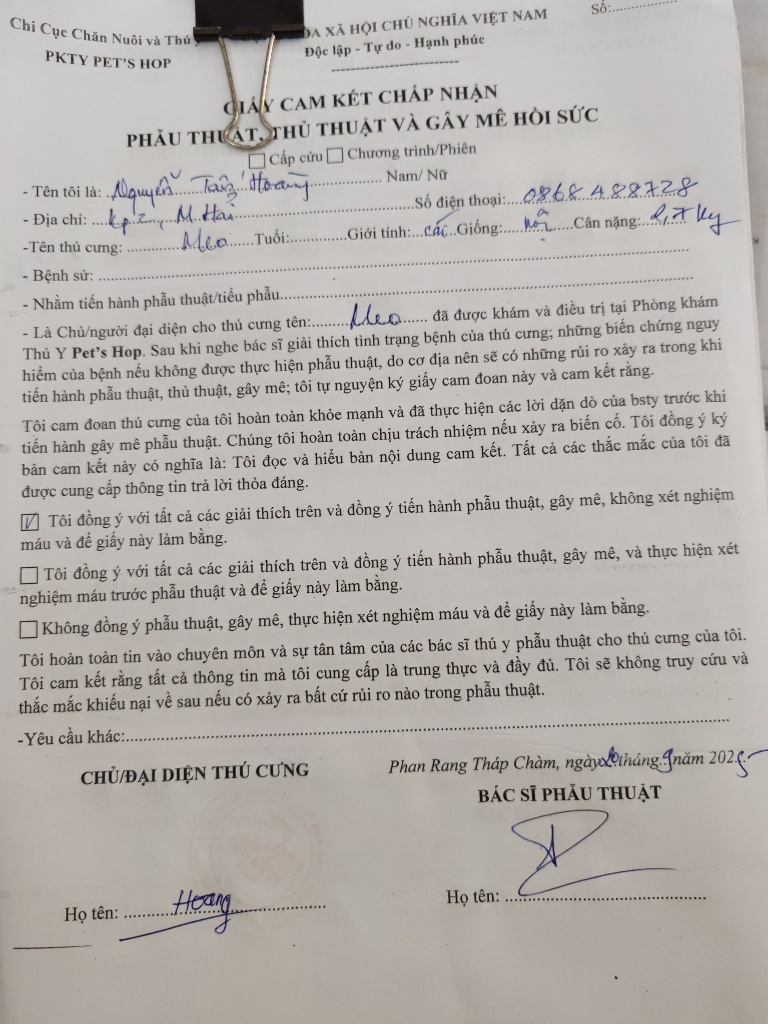 Chi Cục Chăn Nuôi và Thú y
HÒA XÃ HỘI CHỦ NGHĨA VIỆT NAM
Số:
PKTY PET'S HOP
Độc lập - Tự do - Hạnh phúc
GIẤY CAM KẾT CHẤP NHẬN
PHẪU THUẬT, THỦ THUẬT VÀ GÂY MÊ HỒI SỨC
Cấp cứu Chương trình/Phiên
- Tên tôi là: Nguyễn Hoàng Nam/ Nữ
- Địa chỉ: kp 2, M. Hải Số điện thoại: 0868 488728
-Tên thú cưng: Meo Tuổi: Giới tính: cái Giống: nội Cân nặng: 2,7 kg
- Bệnh sử:
- Nhằm tiến hành phẫu thuật/tiểu phẫu
- Là Chủ/người đại diện cho thú cưng tên: Meo đã được khám và điều trị tại Phòng khám
Thú Y Pet's Hop. Sau khi nghe bác sĩ giải thích tình trạng bệnh của thú cưng; những biến chứng nguy
hiểm của bệnh nếu không được thực hiện phẫu thuật, do cơ địa nên sẽ có những rủi ro xảy ra trong khi
tiến hành phẫu thuật, thủ thuật, gây mê; tôi tự nguyện ký giấy cam đoan này và cam kết rằng.
Tôi cam đoan thú cưng của tôi hoàn toàn khỏe mạnh và đã thực hiện các lời dặn dò của bsty trước khi
tiến hành gây mê phẫu thuật. Chúng tôi hoàn toàn chịu trách nhiệm nếu xảy ra biến cố. Tôi đồng ý ký
bản cam kết này có nghĩa là: Tôi đọc và hiểu bản nội dung cam kết. Tất cả các thắc mắc của tôi đã
được cung cấp thông tin trả lời thỏa đáng.
Tôi đồng ý với tất cả các giải thích trên và đồng ý tiến hành phẫu thuật, gây mê, không xét nghiệm
máu và để giấy này làm bằng.
Tôi đồng ý với tất cả các giải thích trên và đồng ý tiến hành phẫu thuật, gây mê, và thực hiện xét
nghiệm máu trước phẫu thuật và để giấy này làm bằng.
Không đồng ý phẫu thuật, gây mê, thực hiện xét nghiệm máu và để giấy này làm bằng.
Tôi hoàn toàn tin vào chuyên môn và sự tân tâm của các bác sĩ thú y phẫu thuật cho thú cưng của tôi.
Tôi cam kết rằng tất cả thông tin mà tôi cung cấp là trung thực và đầy đủ. Tôi sẽ không truy cứu và
thắc mắc khiếu nại về sau nếu có xảy ra bất cứ rủi ro nào trong phẫu thuật.
-Yêu cầu khác:
Phan Rang Tháp Chàm, ngày 20 tháng 9 năm 2025
CHỦ/ĐẠI DIỆN THÚ CƯNG
BÁC SĨ PHẪU THUẬT
Họ tên: Hoang
Họ tên: